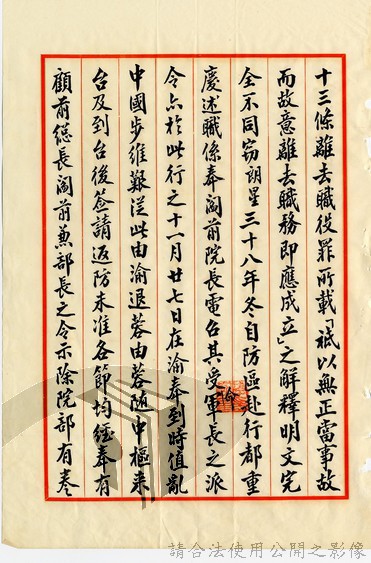 十三條離去職役罪所載「祇以無正當事故
而故意離去職務即應成立」之解釋明文完
全不同窃朗星三十八年冬自防區赴行都重
慶述職係奉閻前院長電召其受軍長之派
令亦於此行之十一月廿七日在渝奉到時值亂
中國步維艱從此由渝退蓉由蓉隨中樞來
台及到台後簽請返防未准各節均經奉有
顧前總長閻前兼部長之令示除院部有卷
請合法使用公開之影像